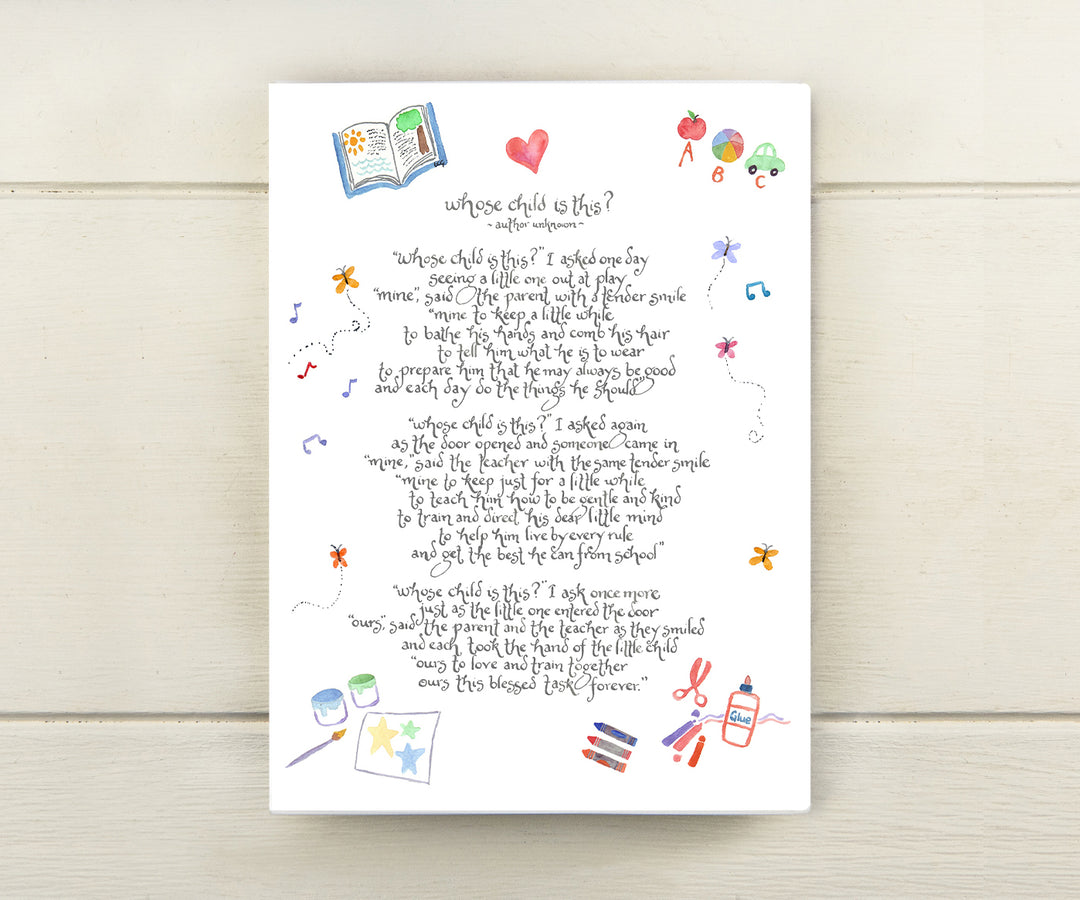 A
B
C
whose child is this?
~ author unknown ~
"whose child is this?" I asked one day
seeing a little one out at play
"mine", said the parent with a tender smile
"mine to keep a little while
to bathe his hands and comb his hair
to tell him what he is to wear
to prepare him that he may always be good
and each day do the things he should"
"whose child is this?" I asked again
as the door opened and someone came in
"mine," said the teacher with the same tender smile
"mine to keep just for a little while
to teach him how to be gentle and kind
to train and direct his dear little mind
to help him live by every rule
and get the best he can from school"
"whose child is this?" I ask once more
just as the little one entered the door
"ours", said the parent and the teacher as they smiled
and each took the hand of the little child
"ours to love and train together
ours this blessed task forever."
Glue